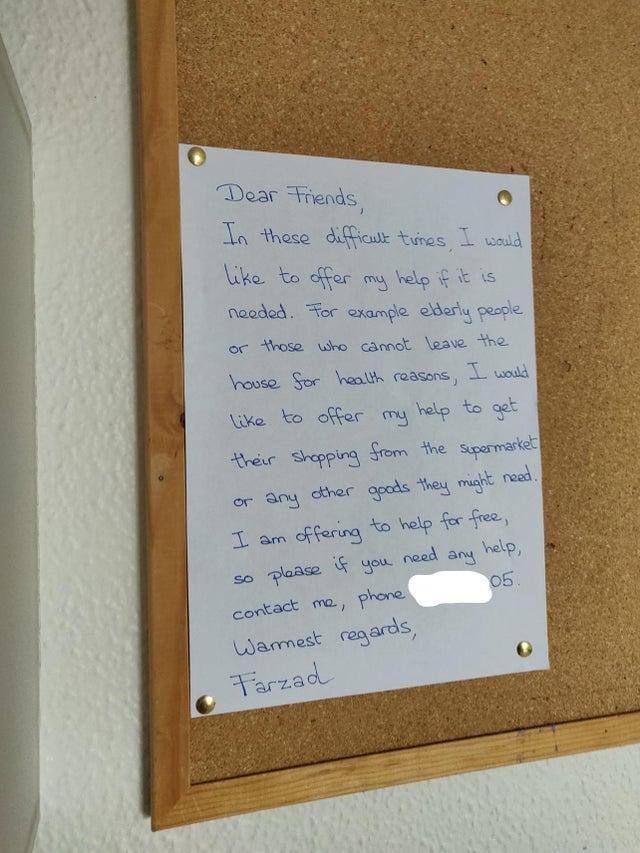 Dear Friends,
In these difficult times, I would
like to offer my help if it is
needed. For example elderly people
or those who cannot leave the
house for health reasons, I would
like to offer my help to get
their shopping from the supermarket
or any other goods they might need.
I am offering to help for free,
so please if you need any help,
contact me, phone 05.
Warmest regards,
Farzad